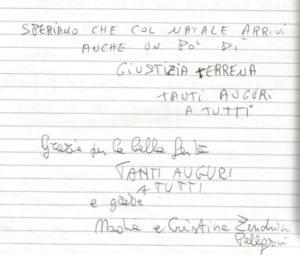 SPERIAMO CHE COL NATALE ARRIVI
ANCHE UN PO' DI
GIUSTIZIA TERRENA
TANTI AUGURI
A TUTTI
Grazie per la bella festa
TANTI AUGURI
A TUTTI
e grazie
e Cristina Zendrini
Pellegrini